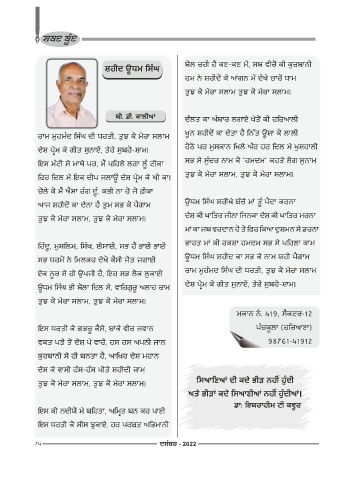 ਸ਼ਬਦ ਬੂੰਦ
ਸ਼ਹੀਦ ਊਧਮ ਸਿੰਘ
ਬੀ. ਡੀ. ਕਾਲੀਆ
ਰਾਮ ਮੁਹਮੰਦ ਸਿੰਘ ਦੀ ਧਰਤੀ, ਤੁਝ ਕੋ ਮੇਰਾ ਸਲਾਮ
ਦੇਸ਼ ਪ੍ਰੇਮ ਕੇ ਗੀਤ ਸੁਨਾਏਂ, ਤੇਰੇ ਸੁਬਹੋ-ਸ਼ਾਮ।
ਇਸ ਮੱਟੀ ਸੇ ਮਾਥੇ ਪਰ, ਮੈਂ ਪਹਿਲੇ ਲਗਾ ਲੂੰ ਟੀਕਾ
ਫਿਰ ਦਿਲ ਮੇਂ ਇਕ ਦੀਪ ਜਲਾਊਂ ਦੇਸ਼ ਪ੍ਰੇਮ ਕੇ ਘੀ ਕਾ।
ਚੋਲੇ ਕੋ ਮੈਂ ਐਸਾ ਰੰਗ ਦੂੰ, ਕਭੀ ਨਾ ਹੋ ਜੋ ਫ਼ੀਕਾ
ਆਜ ਸ਼ਹੀਦੋਂ ਕਾ ਦੇਨਾ ਹੈ ਤੁਮ ਸਭ ਕੋ ਪੈਗਾਮ
ਤੁਝ ਕੋ ਮੇਰਾ ਸਲਾਮ, ਤੁਝ ਕੋ ਮੇਰਾ ਸਲਾਮ।
ਹਿੰਦੂ, ਮੁਸਲਿਮ, ਸਿੱਖ, ਈਸਾਈ, ਸਭ ਹੈਂ ਭਾਈ ਭਾਈ
ਸਭ ਧਰਮੋਂ ਨੇ ਮਿਲਕਰ ਦੇਖੋ ਕੈਸੀ ਜੋਤ ਜਗਾਈ
ਏਕ ਨੂਰ ਸੇ ਹੀ ਉਪਜੀ ਹੈ, ਇਹ ਸਭ ਲੋਕ ਲੁਕਾਈ
ਊਧਮ ਸਿੰਘ ਭੀ ਬੋਲਾ ਦਿਲ ਸੇ, ਵਾਹਿਗੁਰੂ ਅਲਾਹ ਰਾਮ
ਤੁਝ ਕੋ ਮੇਰਾ ਸਲਾਮ, ਤੁਝ ਕੋ ਮੇਰਾ ਸਲਾਮ।
ਇਸ ਧਰਤੀ ਕੇ ਗਭਰੂ ਕੈਸੇ, ਬਾਂਕੇ ਵੀਰ ਜਵਾਨ
ਵਕਤ ਪੜੇ ਤੋ ਦੇਸ਼ ਪੇ ਵਾਰੇਂ, ਹਸ ਹਸ ਅਪਨੀ ਜਾਨ
ਕੁਰਬਾਨੀ ਸੇ ਹੀ ਬਨਤਾ ਹੈ, ਆਖਿਰ ਦੇਸ਼ ਮਹਾਨ
ਦੇਸ਼ ਕੇ ਵਾਸੀ ਹੱਸ-ਹੱਸ ਪੀਤੇ ਸ਼ਹੀਦੀ ਜਾਮ
ਤੁਝ ਕੋ ਮੇਰਾ ਸਲਾਮ, ਤੁਝ ਕੋ ਮੇਰਾ ਸਲਾਮ।
ਇਸ ਕੀ ਨਦੀਯੋਂ ਮੇਂ ਬਹਿਤਾ, ਅਮ੍ਰਿਤ ਬਨ ਕਰ ਪਾਣੀ
ਇਸ ਧਰਤੀ ਕੋ ਸੀਸ ਝੁਕਾਏਂ, ਹਰ ਪਰਬਤ ਅਭਿਮਾਨੀ
ਬੋਲ ਰਹੀ ਹੈ ਕਣ-ਕਣ ਮੇਂ, ਸਬ ਵੀਰੋਂ ਕੀ ਕੁਰਬਾਨੀ
ਹਮ ਨੇ ਸ਼ਹੀਦੋਂ ਕੇ ਆਂਗਨ ਮੇਂ ਦੇਖੇ ਚਾਰੋਂ ਧਾਮ
ਤੁਝ ਕੋ ਮੇਰਾ ਸਲਾਮ ਤੁਝ ਕੋ ਮੇਰਾ ਸਲਾਮ।
ਦੌਲਤ ਕਾ ਅੰਬਾਰ ਲਗਾਏਂ ਖੇਤੋਂ ਕੀ ਹਰਿਆਲੀ
ਖੂਨ ਸ਼ਹੀਦੋਂ ਕਾ ਦੇਤਾ ਹੈ ਨਿੱਤ ਊਸ਼ਾ ਕੋ ਲਾਲੀ
ਹੋਠੋਂ ਪਰ ਮੁਸਕਾਨ ਖਿਲੇ ਔਰ ਹਰ ਦਿਲ ਮੇਂ ਖੁਸ਼ਹਾਲੀ
ਸਭ ਸੇ ਸੁੰਦਰ ਨਾਮ ਕੋ 'ਹਮਦਮ' ਕਹਤੇ ਲੋਗ ਸੁਨਾਮ
ਤੁਝ ਕੋ ਮੇਰਾ ਸਲਾਮ, ਤੁਝ ਕੋ ਮੇਰਾ ਸਲਾਮ।
ਊਧਮ ਸਿੰਘ ਸਰੀਖੇ ਬੱਚੇ ਮਾਂ ਤੂੰ ਪੈਦਾ ਕਰਨਾ
ਦੇਸ਼ ਕੀ ਖਾਤਿਰ ਜੀਨਾ ਜਿਨਕਾ ਦੇਸ਼ ਕੀ ਖਾਤਿਰ ਮਰਨਾ
ਮਾਂ ਕਾ ਜਬ ਵਰਦਾਨ ਹੋ ਤੋ ਫਿਰ ਕਿਆ ਦੁਸ਼ਮਨ ਸੇ ਡਰਨਾ
ਭਾਰਤ ਮਾਂ ਕੀ ਰਕਸ਼ਾ ਹਮਦਮ ਸਭ ਸੇ ਪਹਿਲਾ ਕਾਮ
ਊਧਮ ਸਿੰਘ ਸ਼ਹੀਦ ਕਾ ਸਭ ਕੇ ਨਾਮ ਯਹੀ ਪੈਗਾਮ
ਰਾਮ ਮੁਹੰਮਦ ਸਿੰਘ ਦੀ ਧਰਤੀ, ਤੁਝ ਕੋ ਮੇਰਾ ਸਲਾਮ
ਦੇਸ਼ ਪ੍ਰੇਮ ਕੇ ਗੀਤ ਸੁਨਾਏਂ, ਤੇਰੇ ਸੁਬਹੋ-ਸ਼ਾਮ।
ਮਕਾਨ ਨੰ. 419, ਸੈਕਟਰ-12
ਪੰਚਕੂਲਾ (ਹਰਿਆਣਾ)
98761-41912
ਸਿਆਣਿਆਂ ਦੀ ਕਦੇ ਭੀੜ ਨਹੀਂ ਹੁੰਦੀ
ਅਤੇ ਭੀੜਾਂ ਕਦੇ ਸਿਆਣੀਆਂ ਨਹੀਂ ਹੁੰਦੀਆਂ।
ਡਾ: ਇਬਰਾਹੀਮ ਟੀ ਕਵੂਰ
74
ਦਸੰਬਰ - 2022